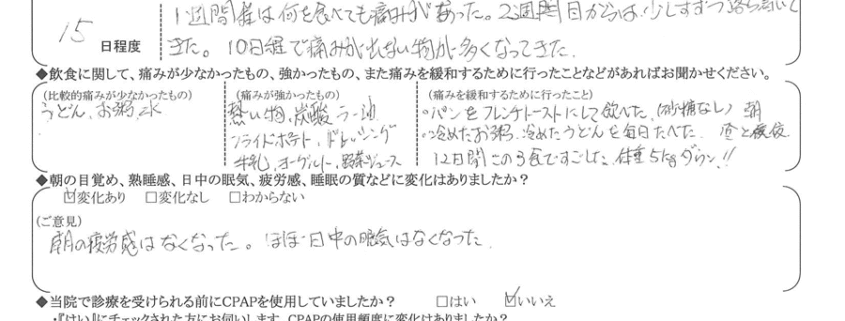 1週間程は何を食べても痛みがあった。2週間目からは少しずつ落ち着いて
15 日程度
きた。10日経で痛みが出ない物が多くなってきた。
◆飲食に関して、痛みが少なかったもの、強かったもの、また痛みを緩和するために行ったことなどがあればお聞かせください。
(比較的痛みが少なかったもの) (痛みが強かったもの) (痛みを緩和するために行ったこと)
うどん、お粥、水 熱い物、炭酸 ラー油 ・パンをフレンチトーストにして食べた。(砂糖なし) 朝
フライドポテト、ドレッシング ・冷めたお粥、冷めたうどんを毎日たべた。昼と夜
牛乳、ヨーグルト、野菜ジュース 12日間この3食ですごした、体重5kgダウン!!
◆朝の目覚め、熟睡感、日中の眠気、疲労感、睡眠の質などに変化はありましたか?
☑変化あり □変化なし □わからない
(ご意見)
朝の疲労感はなくなった。ほぼ日中の眠気はなくなった。
◆当院で診療を受けられる前にCPAPを使用していましたか? □はい ☑いいえ
・『はい』にチェックされた方にお伺いします。CPAPの使用頻度に変化はありましたか?